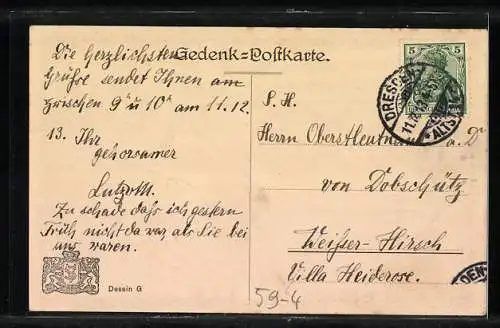 Gedenk=Postkarte.
Die herzlichsten
Grüße sendet Ihnen am
zwischen 9 u 10 am 11.12
13. Ihr
gehorsamer
Zu schade daß ich gestern
Früh nicht da war als Sie bei
uns waren.
Dessin G
5 5
DRESDEN
ALTST.
S. H.
Herrn Oberstleutnant a. D
von Dobschütz
Weißer-Hirsch
Villa Heiderose.
59-4